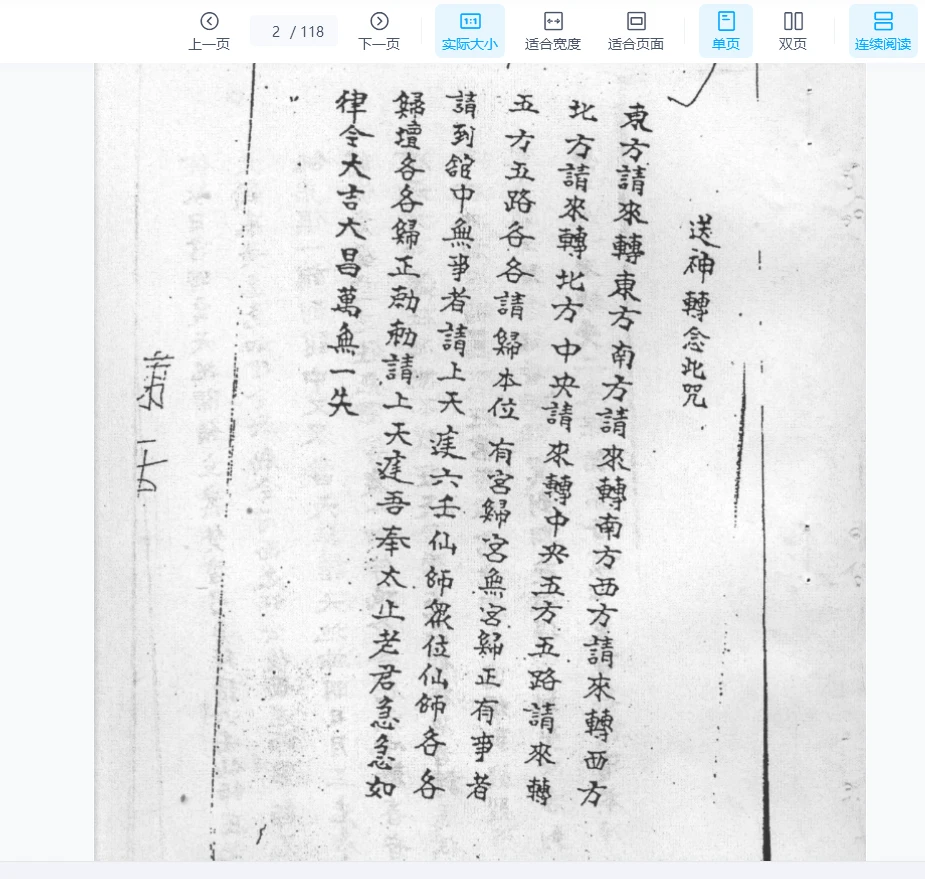 上一页
2 / 118
下一页
1:1
实际大小
适合宽度
适合页面
单页
双页
连续阅读
送神轉念此咒
東方請來轉東方南方請來轉南方西方請來轉西方
北方請來轉北方中央請來轉中央五方五路請來轉
五方五路各各請歸本位有宮歸宮無宮歸正有事者
請到舘中無事者請上天建六壬仙師眾位仙師各各
歸壇各各歸正勅勅請上天建吾奉太止老君急急如
律令大吉大昌萬無一失